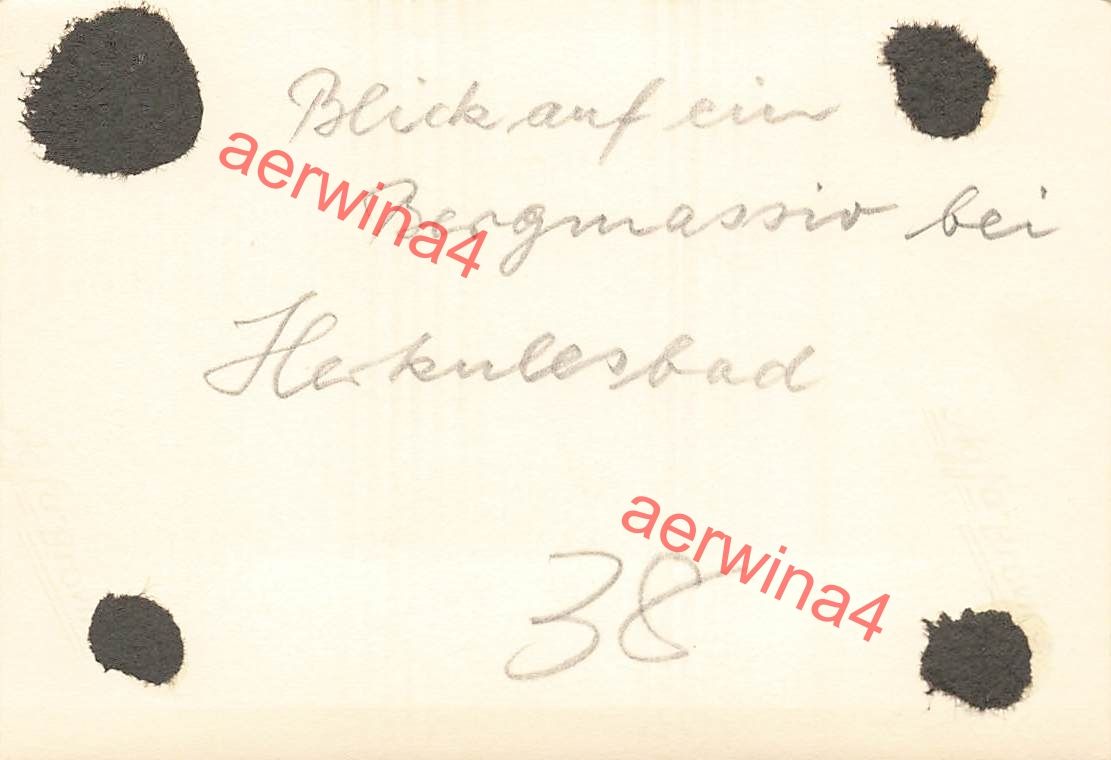 Blick auf ein
aerwina4
Bergmassiv bei
Herkulesbad
aerwina4
38